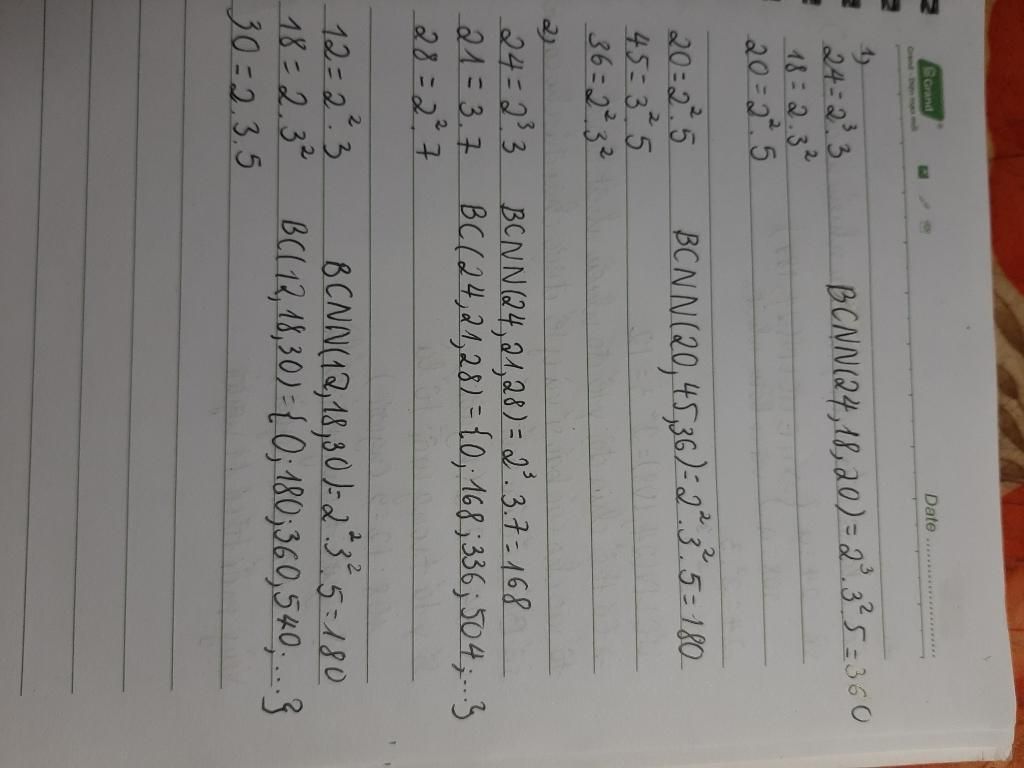 Grand
Date
1)
24 = 2³.3 BCNN(24,18,20) = 2³.3².5 = 360
18 = 2.3²
20 = 2².5
20 = 2².5 BCNN(20,45,36) = 2².3².5 = 180
45 = 3².5
36 = 2².3²
2)
24 = 2³.3 BCNN(24,21,28) = 2³.3.7 = 168
21 = 3.7 BC(24,21,28) = {0;168;336;504;...}
28 = 2².7
12 = 2².3 BCNN(12,18,30) = 2².3².5 = 180
18 = 2.3² BC(12,18,30) = {0;180;360,540;...}
30 = 2.3.5